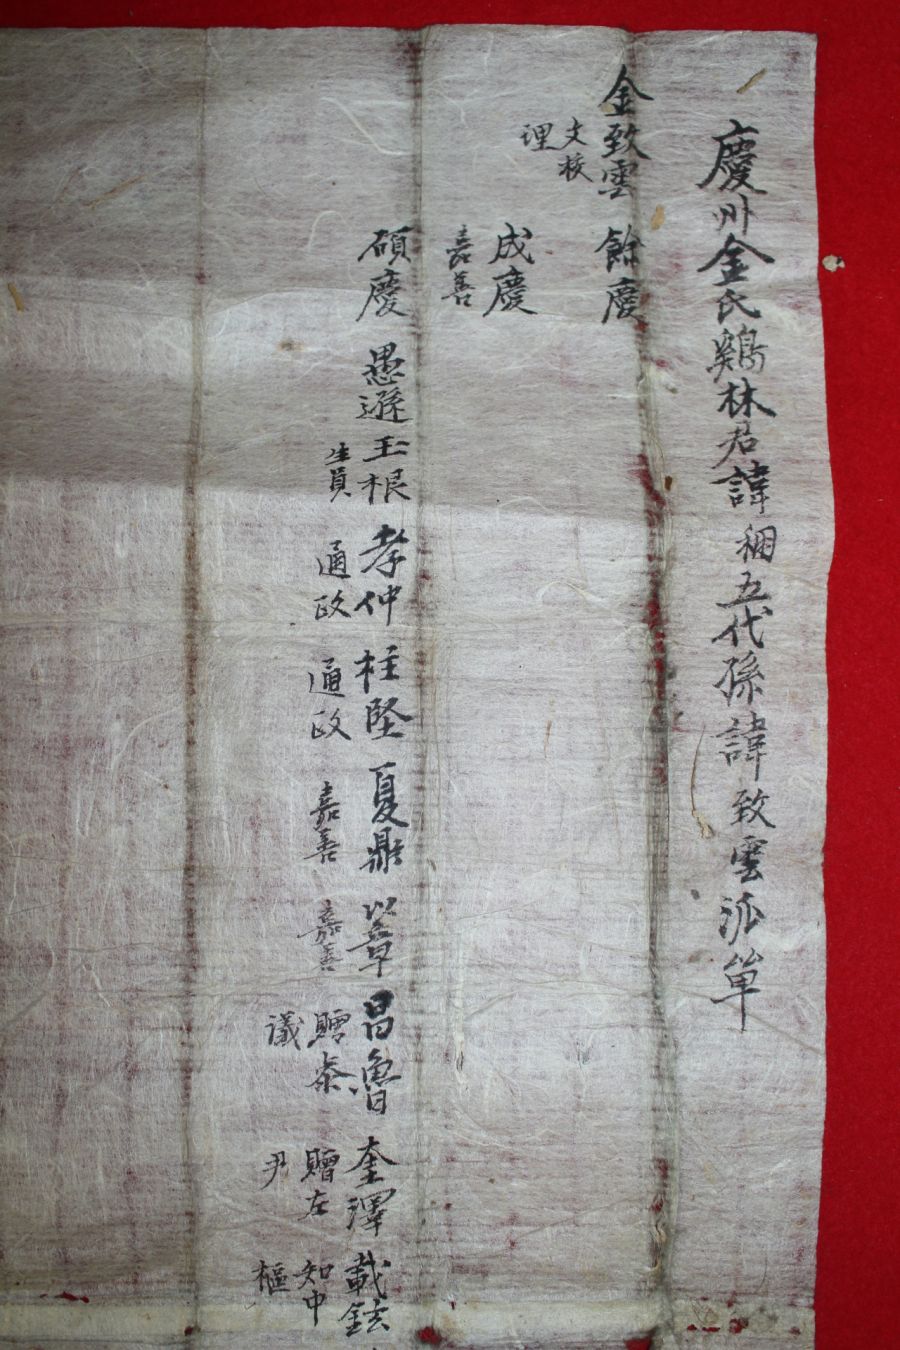 慶州金氏鷄林君諱稛五代孫諱致雲派單
金致雲 餘慶
文校
理
成慶
嘉善
碩慶 愚遜 玉根 孝仲 柱堅 夏鼎 以章 昌魯 奎澤 載鉉
生員 通政 通政 嘉善 嘉善 贈叅 贈左 知中
議 尹 樞